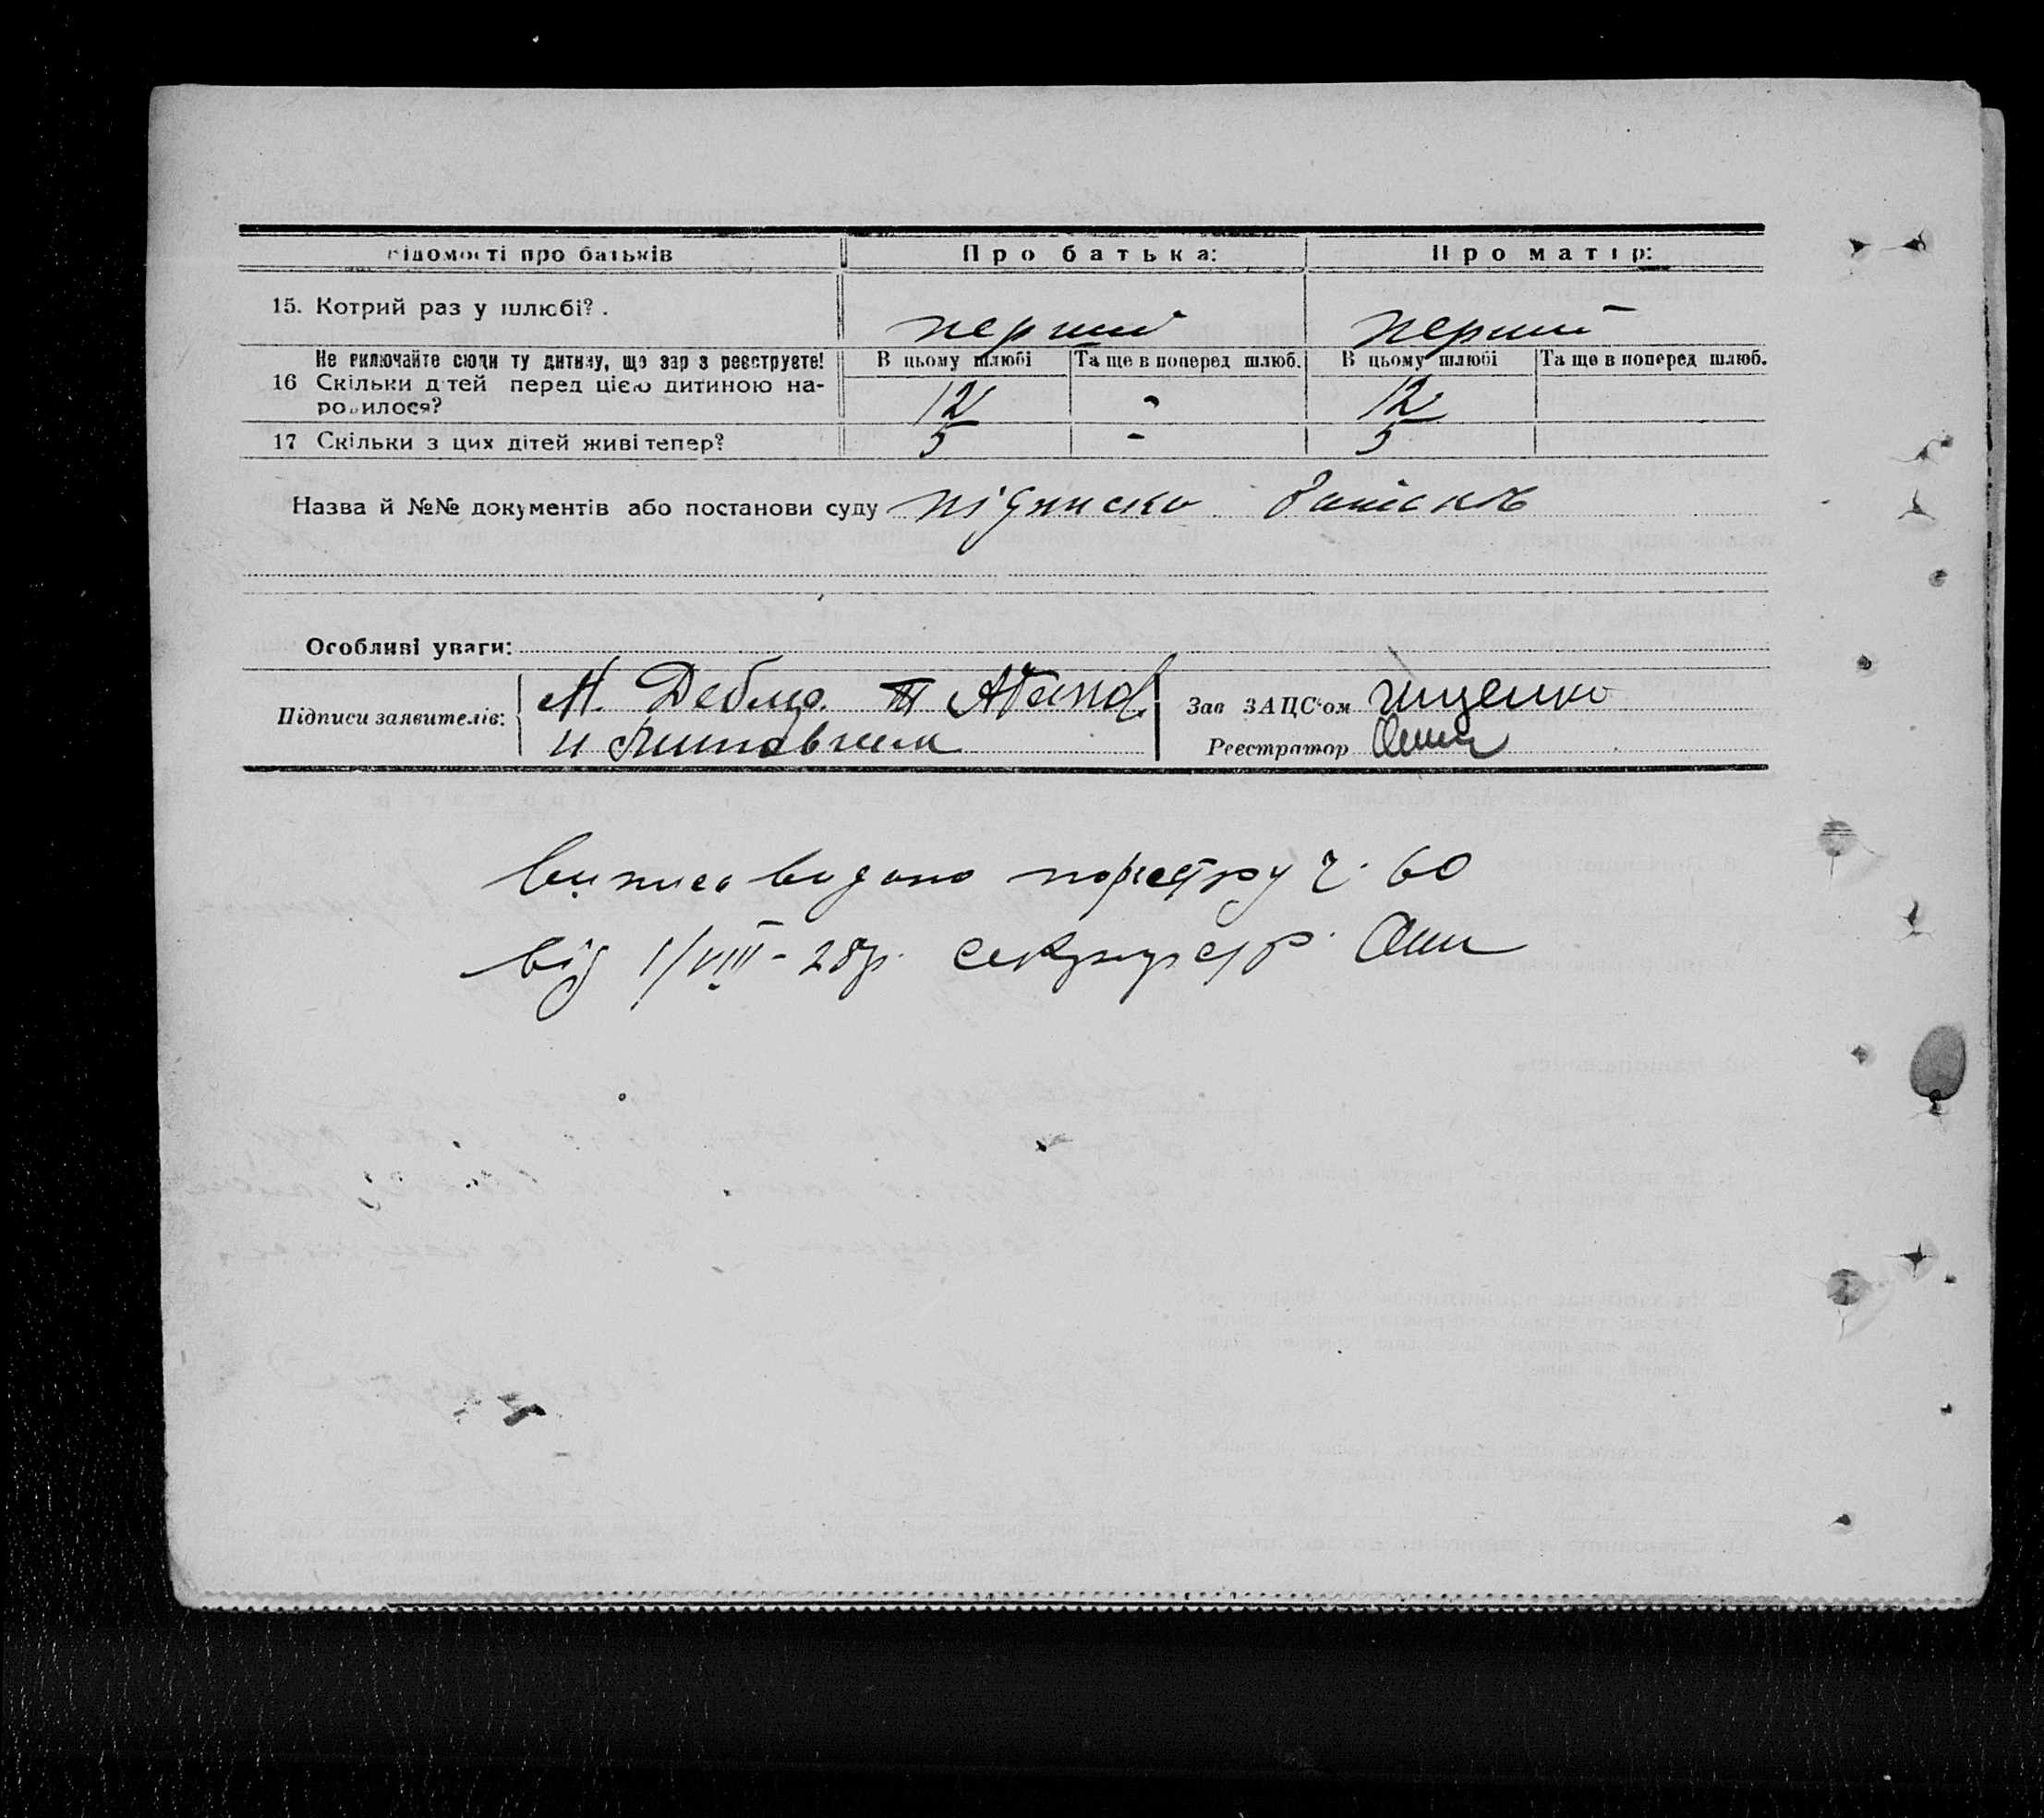 Відомості про батьків Про батька: Про матір:
15. Котрий раз у шлюбі? перший перший
Не включайте сюди ту дитину, що зараз реєструєте! В цьому шлюбі Та ще в поперед шлюб. В цьому шлюбі Та ще в поперед шлюб.
16 Скільки дітей перед цією дитиною на- 12 - 12
родилося?
17 Скільки з цих дітей живі тепер? 5 - 5
Назва й №№ документів або постанови суду підписка
Особливі уваги:
Підписи заявителів: М. Зав ЗАЦС'ом Іщенко
и Реєстратор
Випис видано по реєстру ч. 60
від 1/VIII-28р.